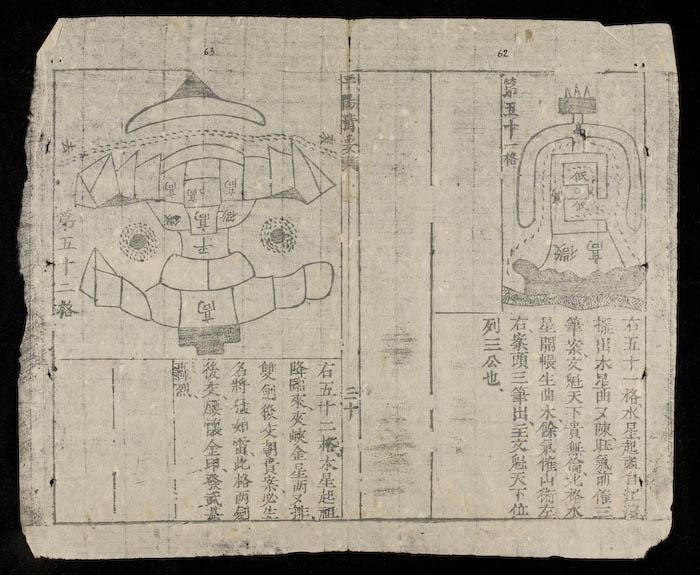 62
第五十一格
低
低
高
微
右五十一格水星起祖自江
擺出水星曲又陳旺氣前催三
筆案文魁天下貴無倫此格水
星開帳生曲木餘氣催山衛左
右案頭三筆出主文魁天下位
列三公也
三十
63
來
去
第五十二格
高
高
高
微
平
高
右五十二格水星起祖
降臨來夾峽金星兩又排
雙劍後交朝貴案必生
名將猛如雷此格兩劍
後交腰懷金印發武
轟烈